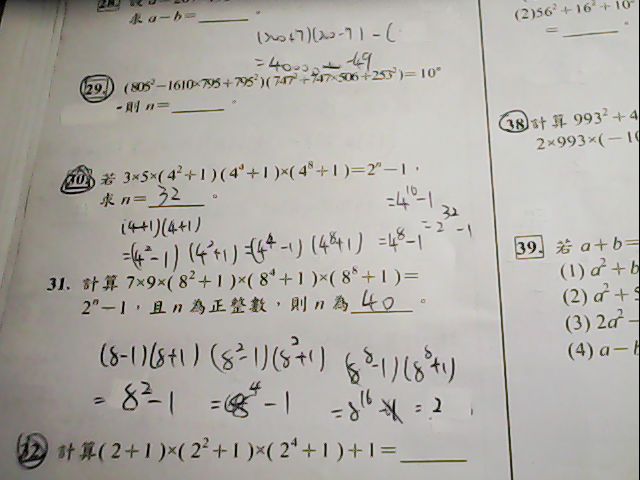 求 a－b＝______。
(200+7)(200-7) - (
= 40000 - 49
29. (805²－1610×795＋795²)(747²＋747×506＋253²)＝10ⁿ
則 n＝______。
30. 若 3×5×(4²＋1)(4⁴＋1)×(4⁸＋1)＝2ⁿ－1，
求 n＝ 32 。
=4¹⁶-1
(4-1)(4+1)
=(4²-1) (4²+1) =(4⁴-1) (4⁸+1) =4⁸-1 =2³²-1
31. 計算 7×9×(8²＋1)×(8⁴＋1)×(8⁸＋1)＝
2ⁿ－1，且 n 為正整數，則 n 為 40 。
(8-1)(8+1) (8²-1)(8²+1) (8⁸-1)(8⁸+1)
= 8²-1 = 8⁴-1 =8¹⁶ = 2
32. 計算(2＋1)×(2²＋1)×(2⁴＋1)＋1＝______
(2) 56²＋16²＋10
＝______
38 計算 993²＋4
2×993×(－10
39. 若 a＋b＝
(1) a²＋b
(2) a²＋
(3) 2a²－
(4) a－b